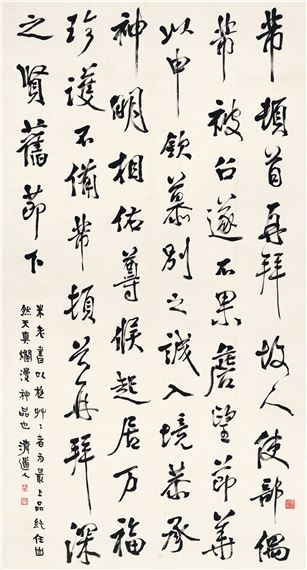 芾頓首再拜故人使部偶
芾被召遂不果詹望節華
以申欽慕別之誠入境恭承
神明相佑尊候起居万福
珍護不備芾頓首再拜深
之賢舊節下
米老書以極艸〻者為最上品純任自
然天真爛漫神品也 清道人